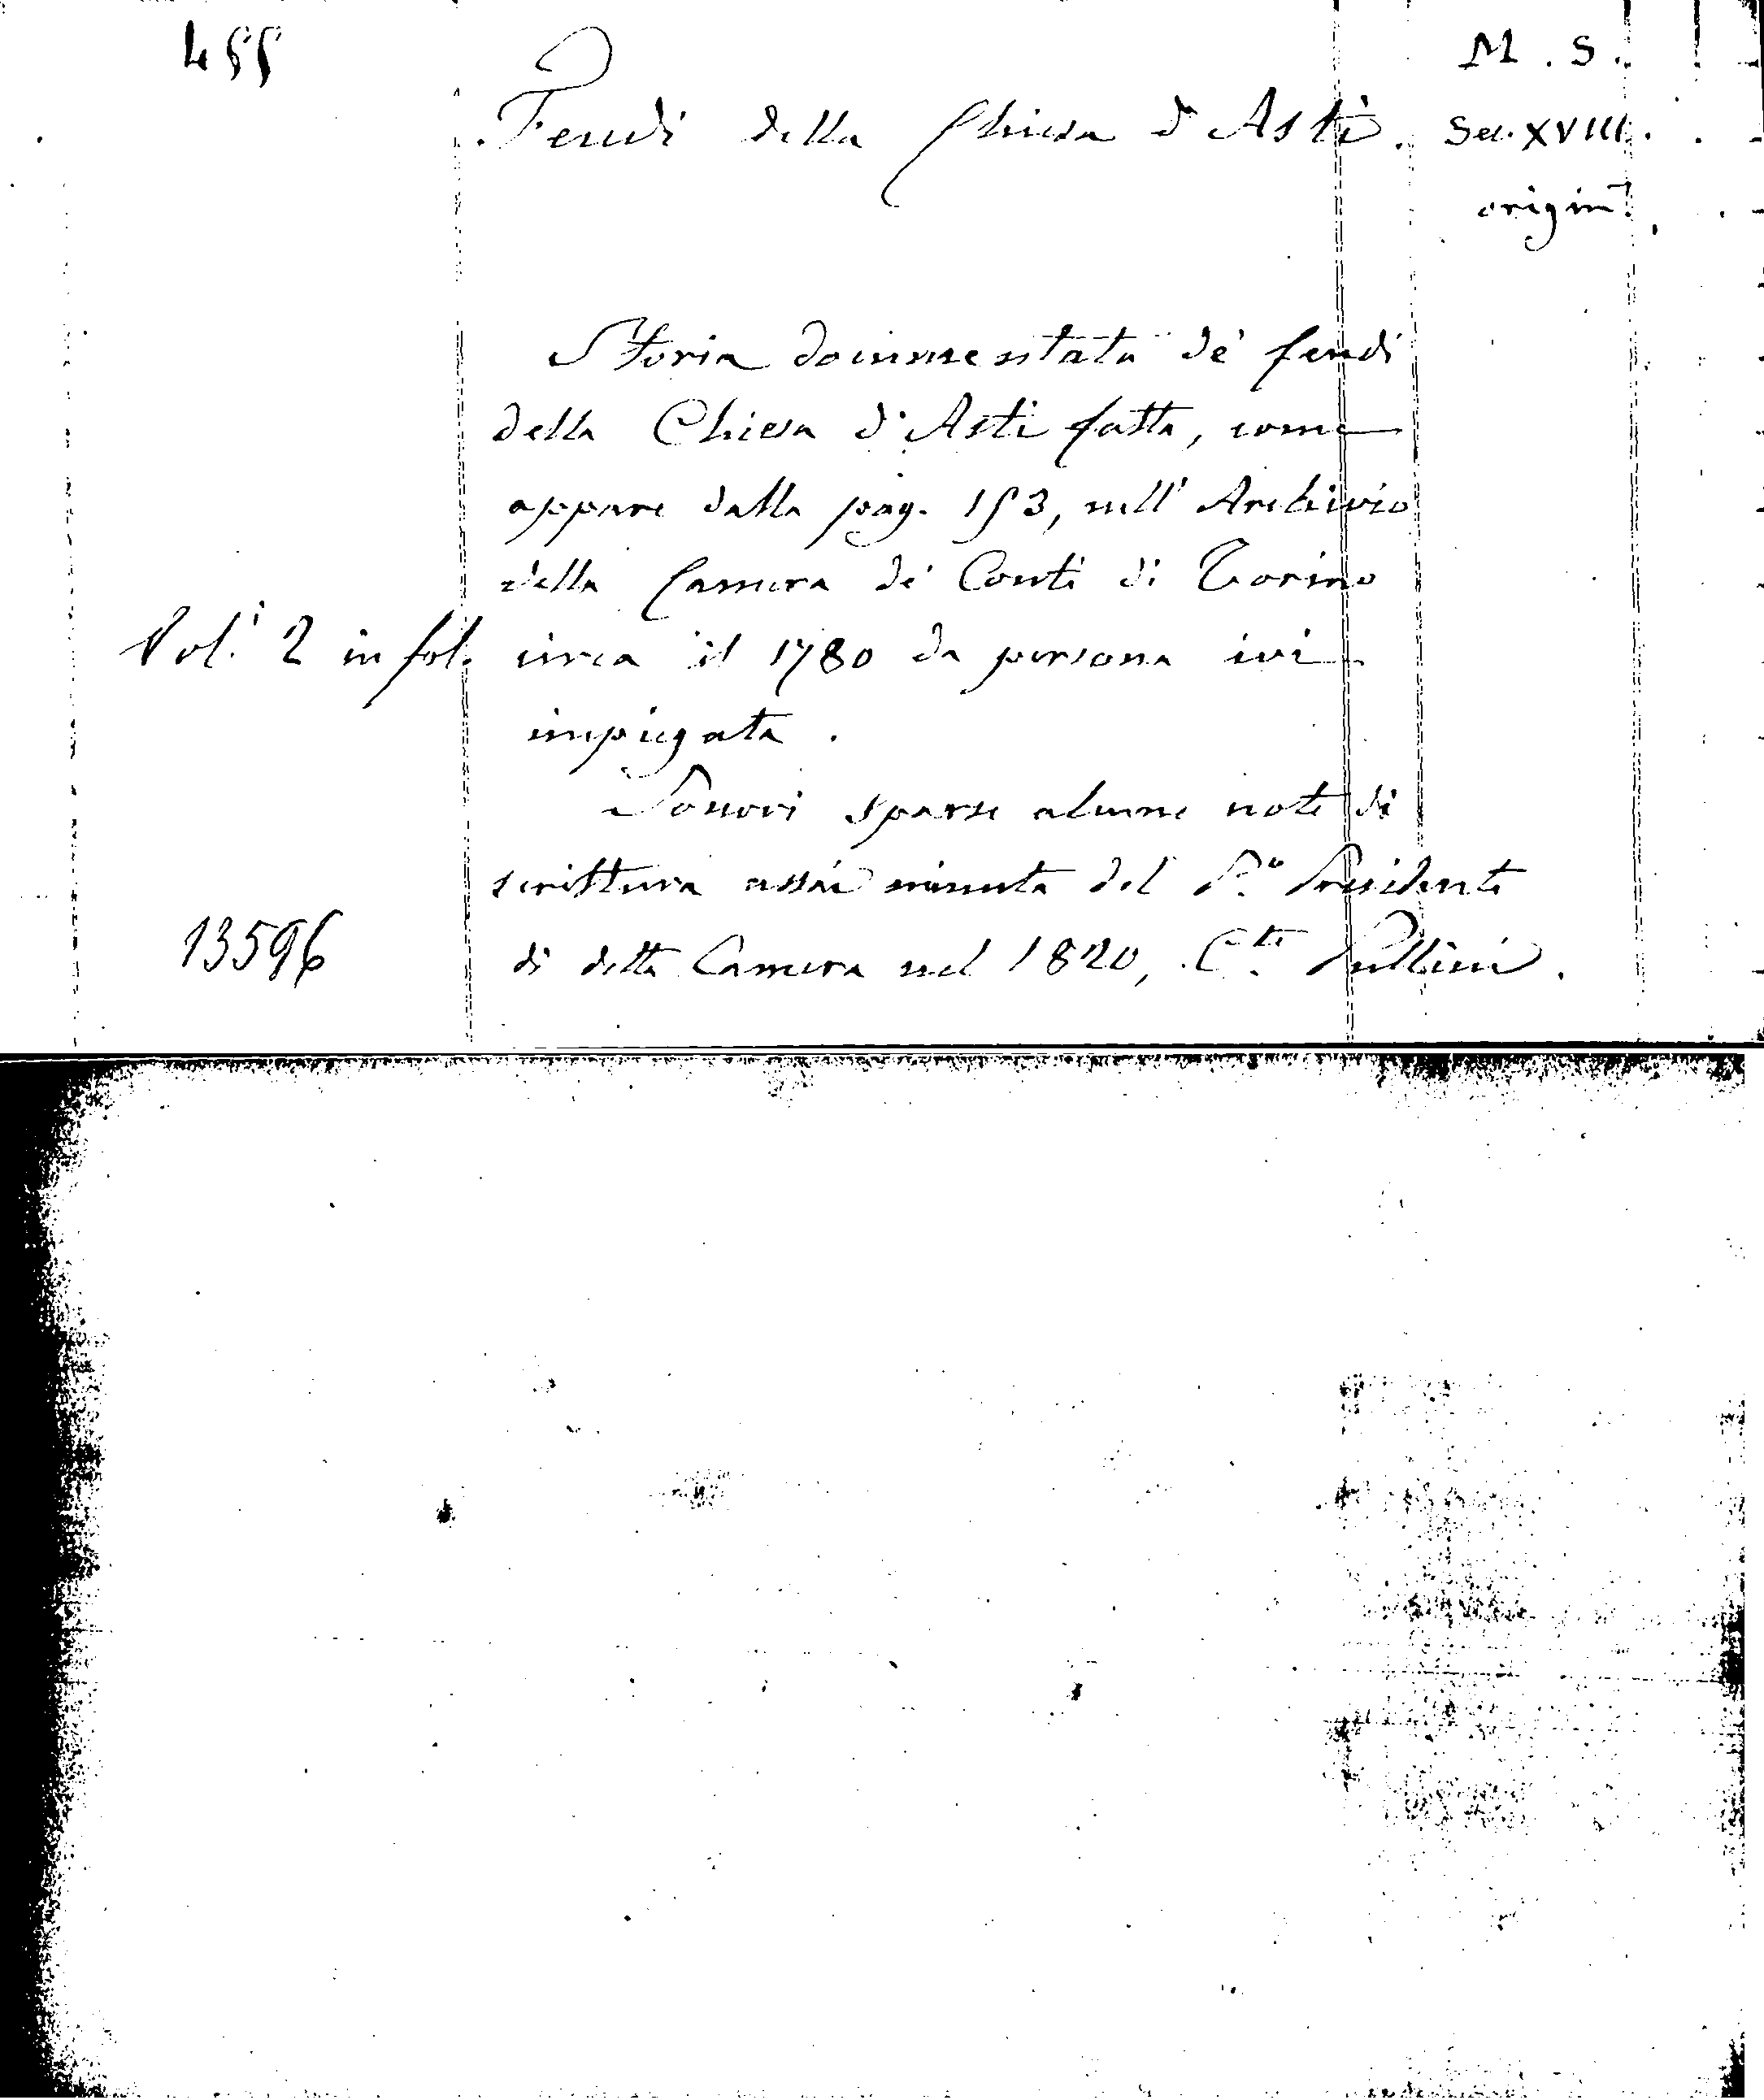 455
M. S.
Feudi della Chiesa d'Asti.
Sec. XVIII.
origin.
Storia documentata de' feudi
della Chiesa d'Asti fatta, come
appare dalla pag. 153, nell'Archivio
della Camera de' Conti di Torino
Vol.i 2 in fol. circa il 1780 da persona ivi
impiegata.
Sonovi sparse alcune note di
scrittura assai minuta del P.o Presidente
13596
di detta Camera nel 1820, C.te Pullini.